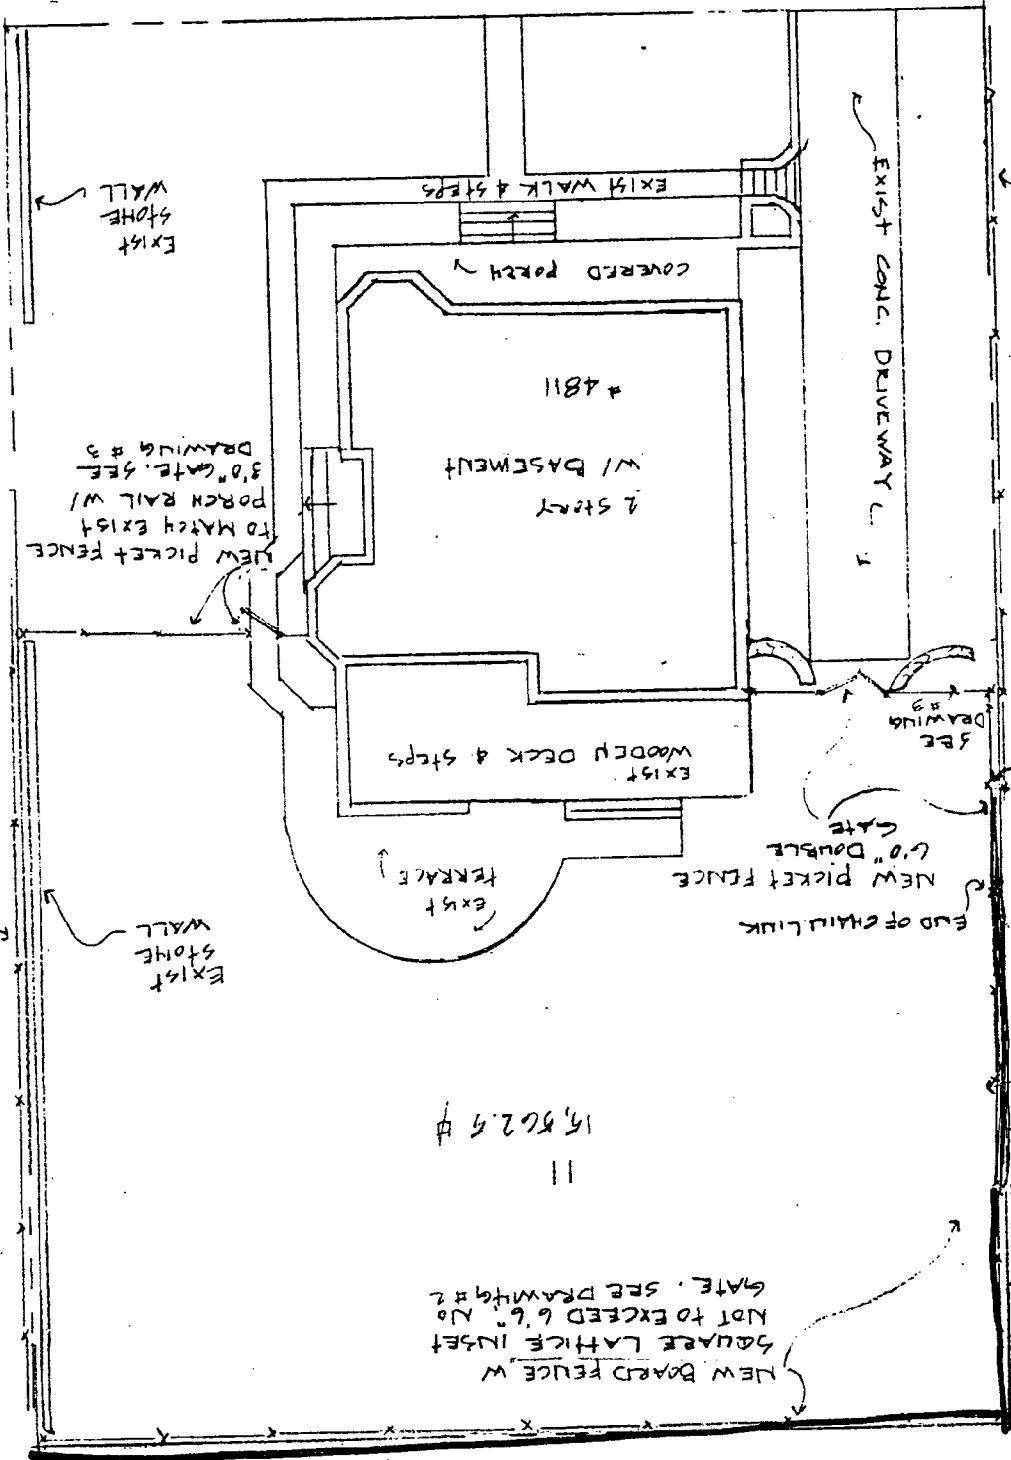 NEW BOARD FENCE W
SQUARE LATTICE INSET
NOT TO EXCEED 6'6", NO
GATE. SEE DRAWING #2
11
15,562.5
EXIST
STONE
WALL
END OF CHAIN LINK
NEW PICKET FENCE
6'0" DOUBLE
GATE
EXIST
TERRACE
SEE
DRAWING
#3
EXIST
WOODEN DECK & STEPS
NEW PICKET FENCE
TO MATCH EXIST
PORCH RAIL W/
3'0" GATE. SEE
DRAWING #3
2 STORY
W/ BASEMENT
# 4811
EXIST CONC. DRIVEWAY
COVERED PORCH
EXIST WALK & STEPS
EXIST
STONE
WALL